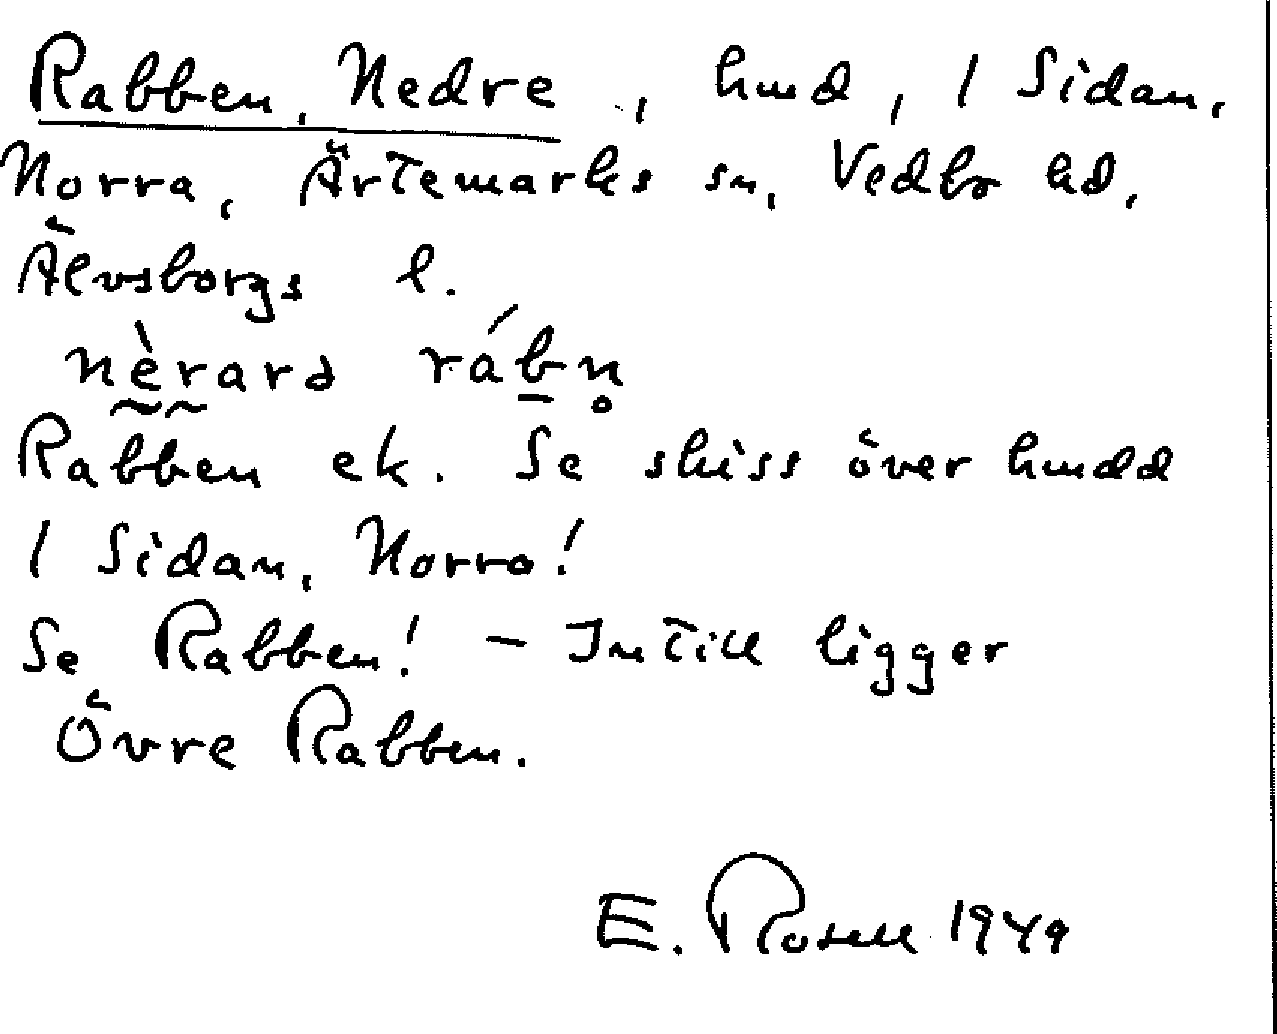 Rabben, Nedre, hmd, 1 Sidan,
Norra, Ärtemarks sn, Vedbo hd,
Älvsborgs l.
nḛ̀r̰ard ráb̲n̥
Rabben ek. Se skiss över hmdd
1 Sidan, Norra!
Se Rabben! – Intill ligger
Övre Rabben.
E. Rosell 1949